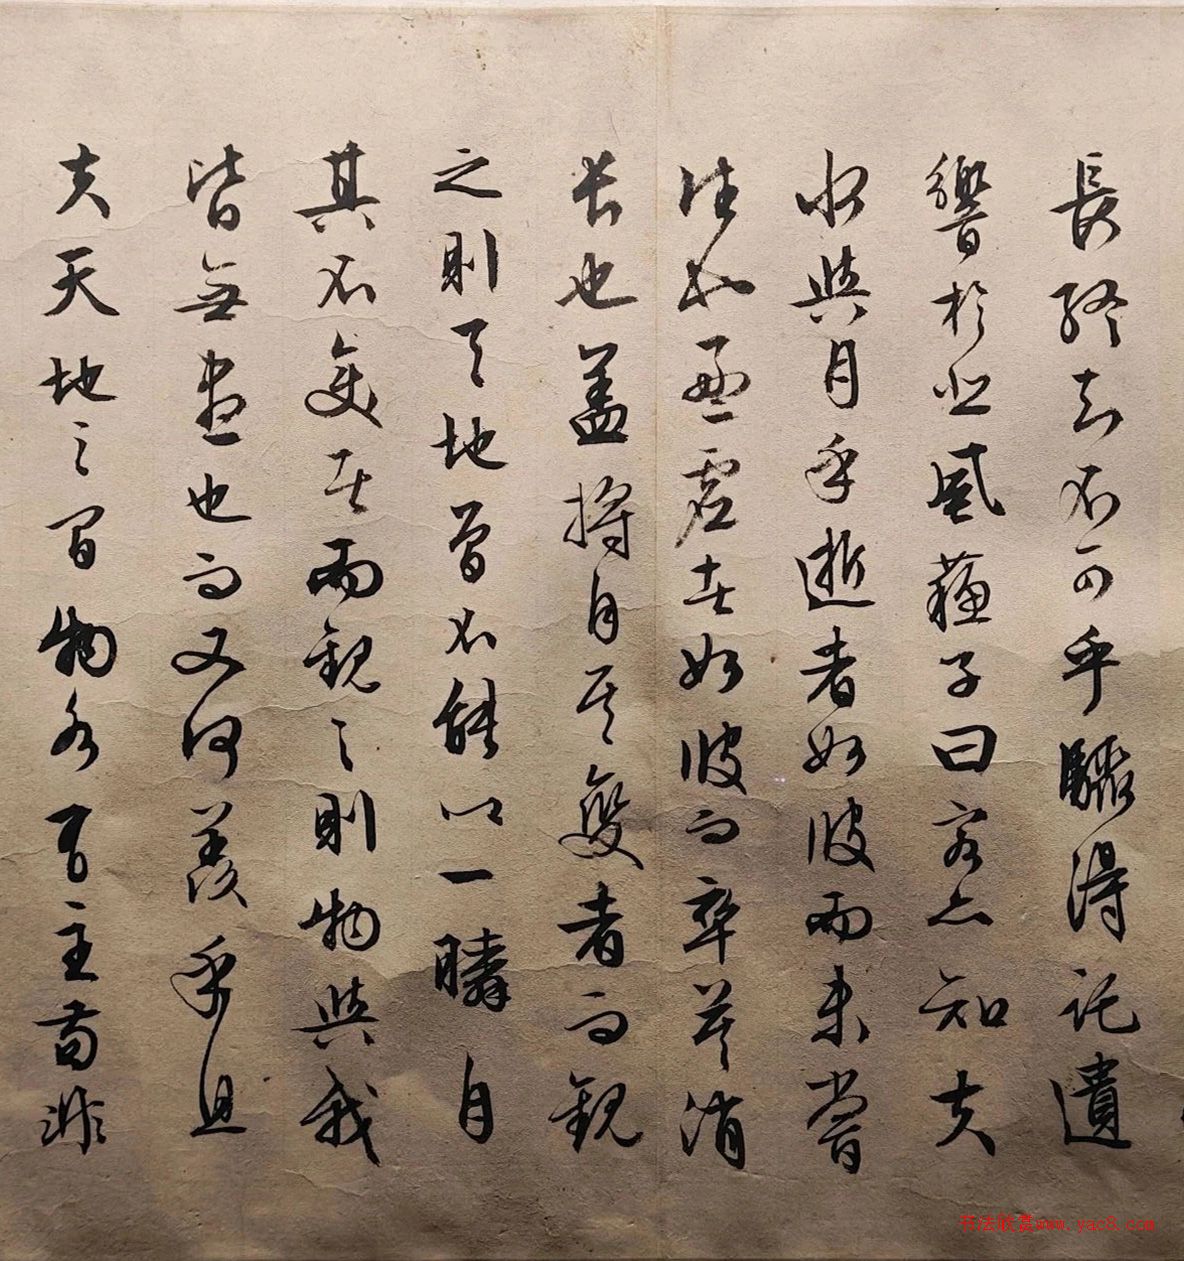 長終知不可乎驟得託遺
響於悲風蘇子曰客亦知夫
水與月乎逝者如彼而未嘗
往也盈虛者如彼而卒莫消
長也盖將自其變者而觀
之則天地曾不能以一瞬自
其不變者而觀之則物與我
皆無盡也而又何羨乎且
夫天地之間物各有主苟非
书法欣赏www.yac8.com